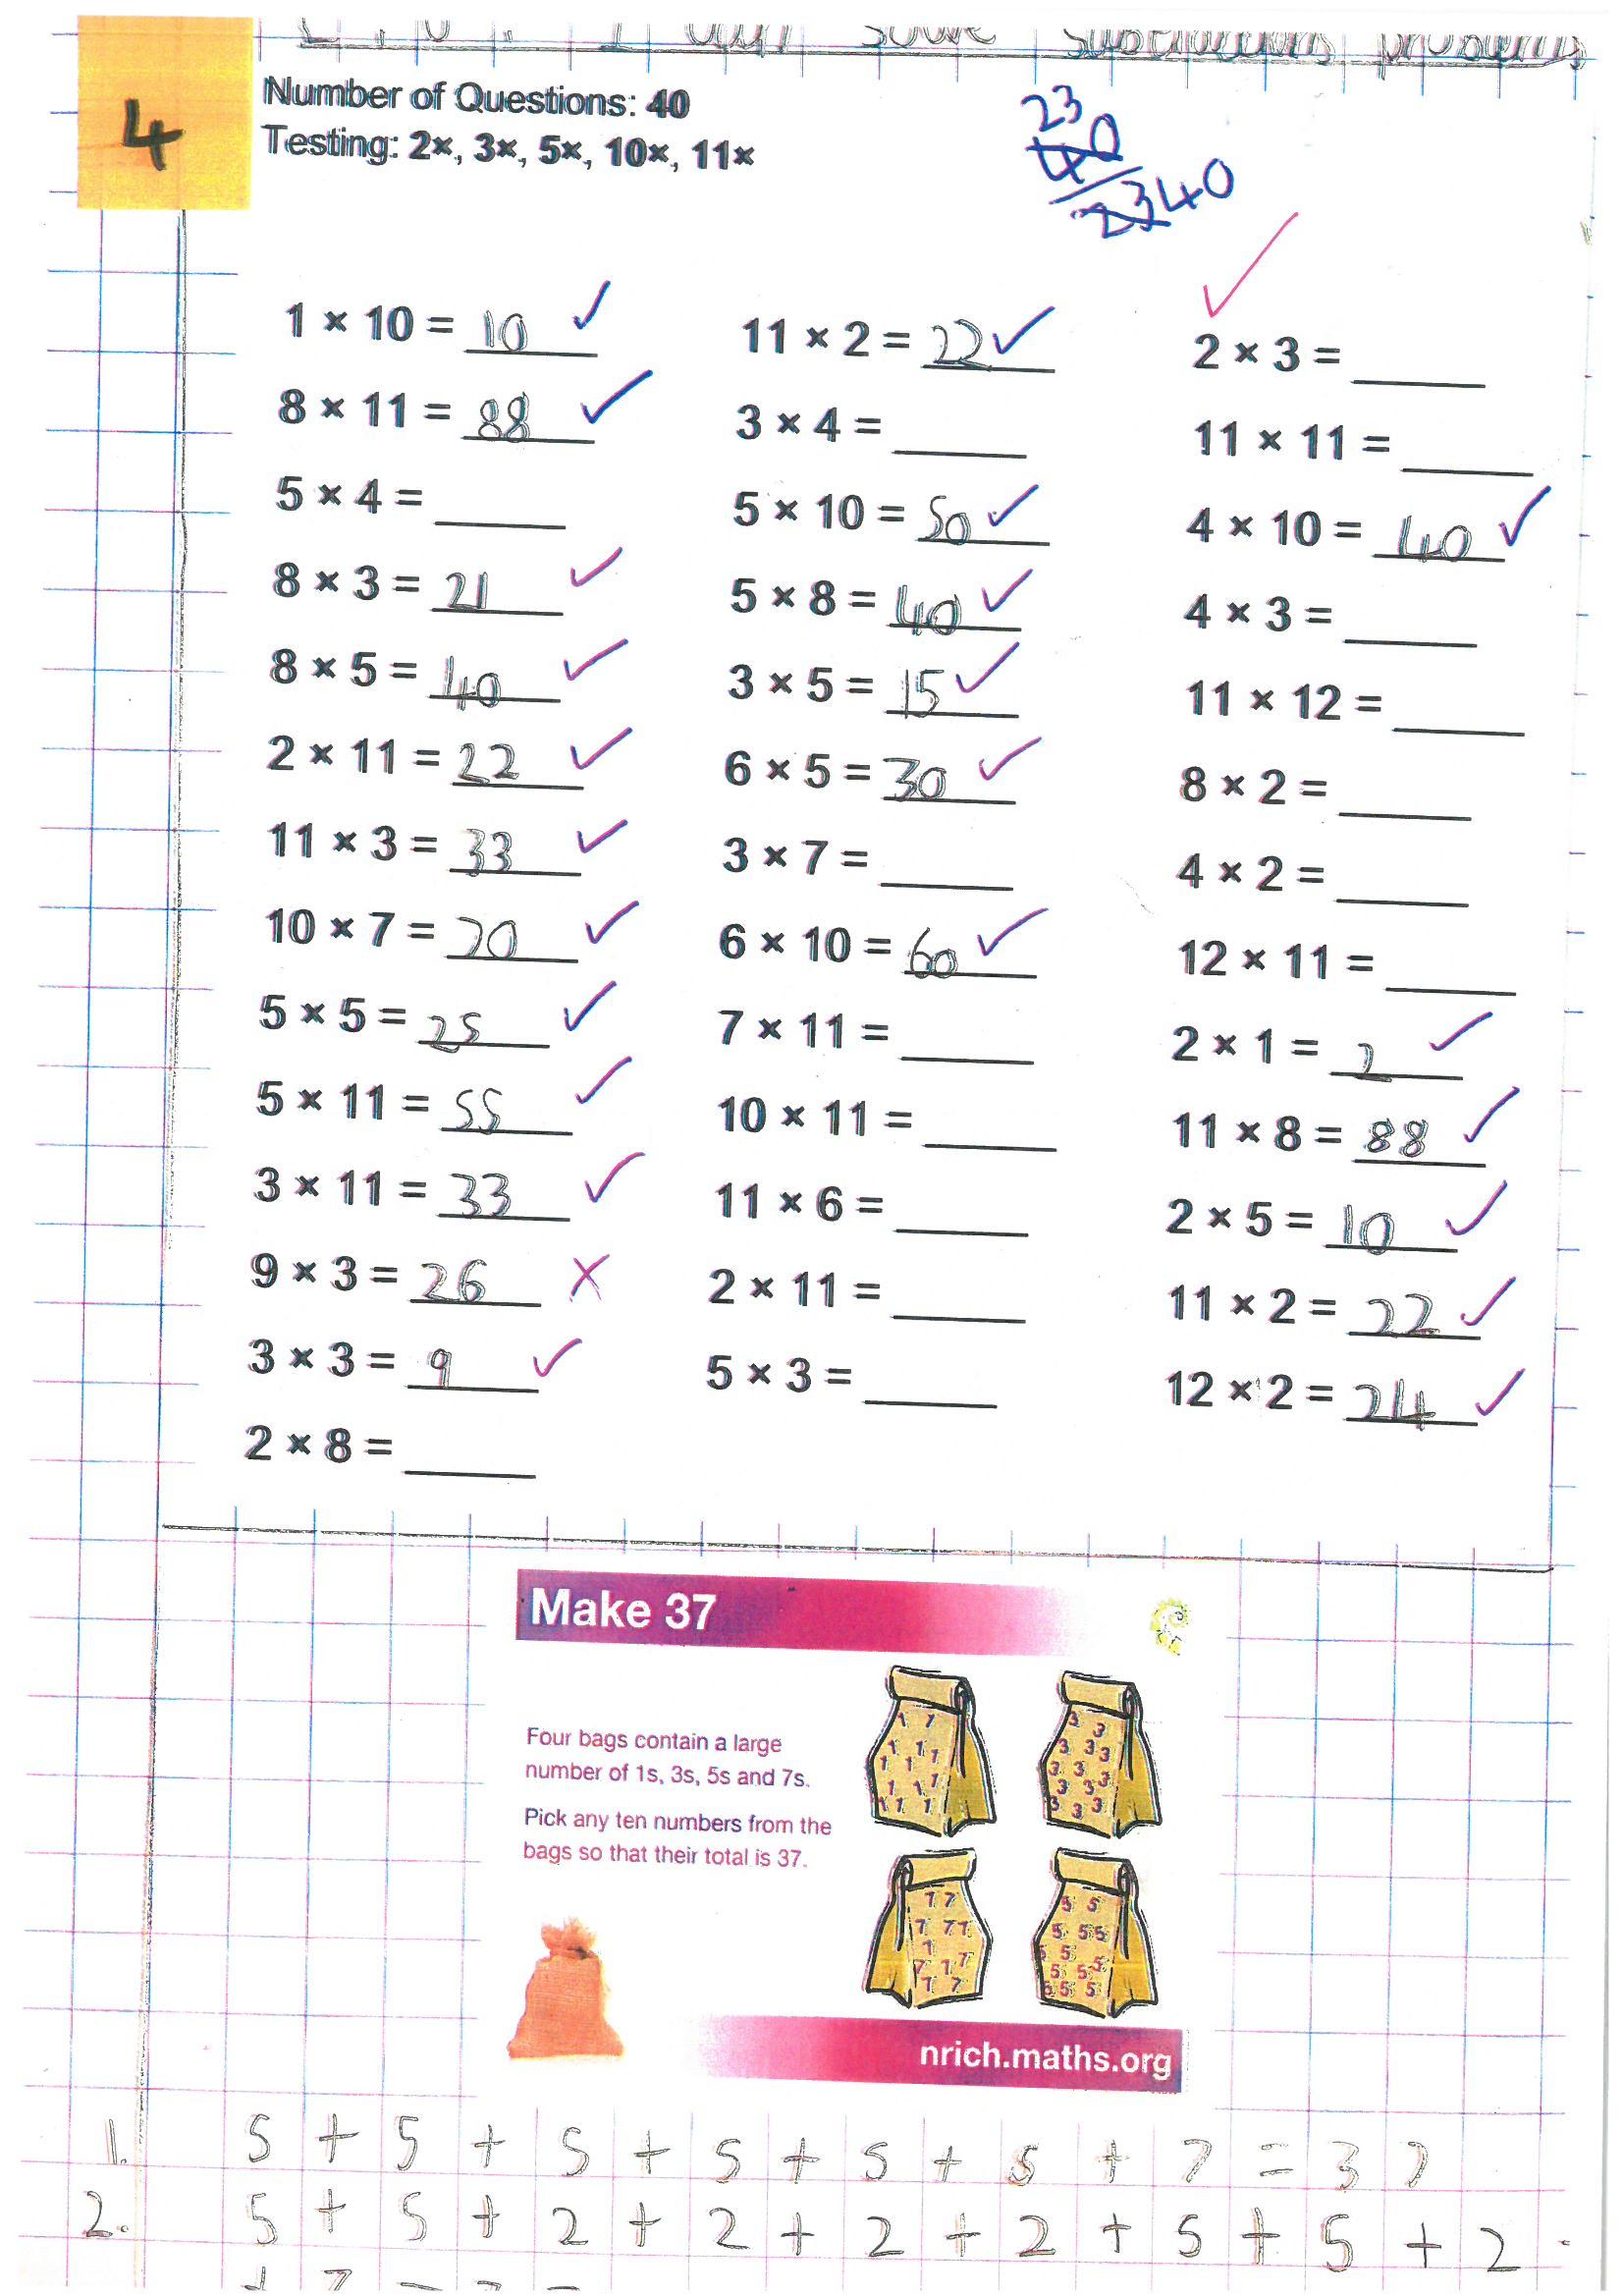 L.O: I can solve subtractions problems
4
Number of Questions: 40
Testing: 2×, 3×, 5×, 10×, 11×
23
40
2340
1 × 10 = 10 ✓
8 × 11 = 88 ✓
5 × 4 = ____
8 × 3 = 21 ✓
8 × 5 = 40 ✓
2 × 11 = 22 ✓
11 × 3 = 33 ✓
10 × 7 = 70 ✓
5 × 5 = 25 ✓
5 × 11 = 55 ✓
3 × 11 = 33 ✓
9 × 3 = 26 ✗
3 × 3 = 9 ✓
2 × 8 = ____
11 × 2 = 22 ✓
3 × 4 = ____
5 × 10 = 50 ✓
5 × 8 = 40 ✓
3 × 5 = 15 ✓
6 × 5 = 30 ✓
3 × 7 = ____
6 × 10 = 60 ✓
7 × 11 = ____
10 × 11 = ____
11 × 6 = ____
2 × 11 = ____
5 × 3 = ____
✓
2 × 3 = ____
11 × 11 = ____
4 × 10 = 40 ✓
4 × 3 = ____
11 × 12 = ____
8 × 2 = ____
4 × 2 = ____
12 × 11 = ____
2 × 1 = 2 ✓
11 × 8 = 88 ✓
2 × 5 = 10 ✓
11 × 2 = 22 ✓
12 × 2 = 24 ✓
Make 37
Four bags contain a large
number of 1s, 3s, 5s and 7s.
Pick any ten numbers from the
bags so that their total is 37.
nrich.maths.org
1. 5 + 5 + 5 + 5 + 5 + 5 + 7 = 37
2. 5 + 5 + 2 + 2 + 2 + 2 + 5 + 5 + 2